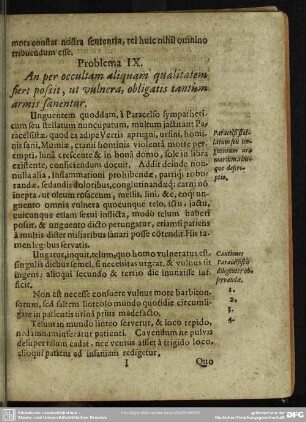 mota constat nostra sententia, rei huic nihil omnino
tribuendum esse.
Problema IX.
An per occultam aliquam qualitatem
fieri possit, ut vulnera, obligatis tantum
armis sanentur.
Unguentem quoddam, à Paracelso sympatheti-
cum seu stellatum nuncupatum, multum jactitant Pa-
racelsistæ, quod ex adipe Verris aprugni, ursini, homi-
nis sani, Mumiæ, cranii hominis violentâ morte per-
empti, lunâ crescente & in bonâ domo, sole in libra
existente, conficiendum docuit. Addit deinde nonnulla
alia, inflammationi prohibendæ, parti roborandæ,
sedandis doloribus, conglutinandæ carni
inepta, ut oleum rosaceum, mellis, lini, &c. eoq; un-
guento omnia vulnera quocunque telo, ictu, jactu,
cuicunque etiam sexui inflicta, modò telum haberi
possit, & unguento dicto perungatur, etiamsi patiens
à multis distet miliaribus sanari posse contendit. His ta-
men legibus servatis.
Ungatur, inquit, telum, quo homo vulneratus est
singulis diebus semel, si necessitas urgeat, & vulnus sit
ingens; alioqui secundo & tertio die inunxisse suf-
ficit.
Non est necesse consuere vulnus more barbiton-
sorum, sed saltem linteolo mundo quotidie circumli-
gate in patientis urina prius madefacto.
Telum in mundo linteo servetur, & loco tepido,
Cavendum ne pulvis
desuper talum cadat, nec ventus afflet à frigido loco,
alioqui patiens ad insaniam redigetur.
I Quo
Paracelsi stel-
latum seu
unguentum ar-
marium,
descri-
ptio.
Cautiones
Paracelsistis
diligenter ob-
servandæ.
1.
2.
3.
4.